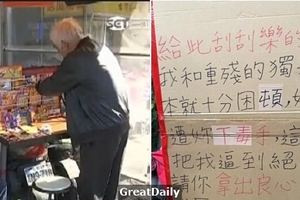 SET
給此刮刮樂的
我和重殘的獨
本就十分困頓,
遭妳下毒手,這
把我逼到絕
請你拿出良心
GreatDaily